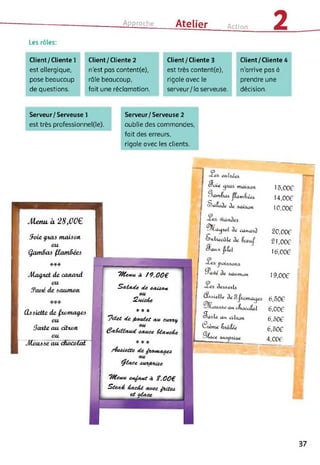 Approche Atelier Action 2
Les rôles:
Client / Cliente 1
est allergique,
pose beaucoup
de questions.
Client / Cliente 2
n'est pas content(e),
râle beaucoup,
fait une réclamation.
Client / Cliente 3
est très content(e),
rigole avec le
serveur / la serveuse.
Client / Cliente 4
n'arrive pas à
prendre une
décision.
Serveur / Serveuse 1
est très professionnel(le).
Serveur / Serveuse 2
oublie des commandes,
fait des erreurs,
rigole avec les clients.
Menu à 28,00€
Foie gras maison
ou
Gambas flambées
***
Magret de canard
ou
Pavé de saumon
***
Assiette de fromages
ou
Tarte au citron
ou
Mousse au chocolat
Menu à 19,00€
Salade de saison
ou
Quiche
***
Filet de poulet au curry
ou
Cabillaud sauce blanche
***
Assiette de fromages
ou
Glace surprise
Menu enfant à 8,00€
Steak haché avec frites
et glace
Les entrées
Foie gras maison 15,00€
Gambas flambées 14,00€
Salade de saison 10,00€
Les viandes
Magret de canard 20,00€
Entrecôte de bœuf 21,00€
Faux filet 16,00€
Les poissons
Pavé de saumon 19,00€
Les desserts
Assiette de 3 fromages 6,50€
Mousse au chocolat 6,00€
Tarte au citron 6,50€
Crème brûlée 6,50€
Glace surprise 4,00€
37